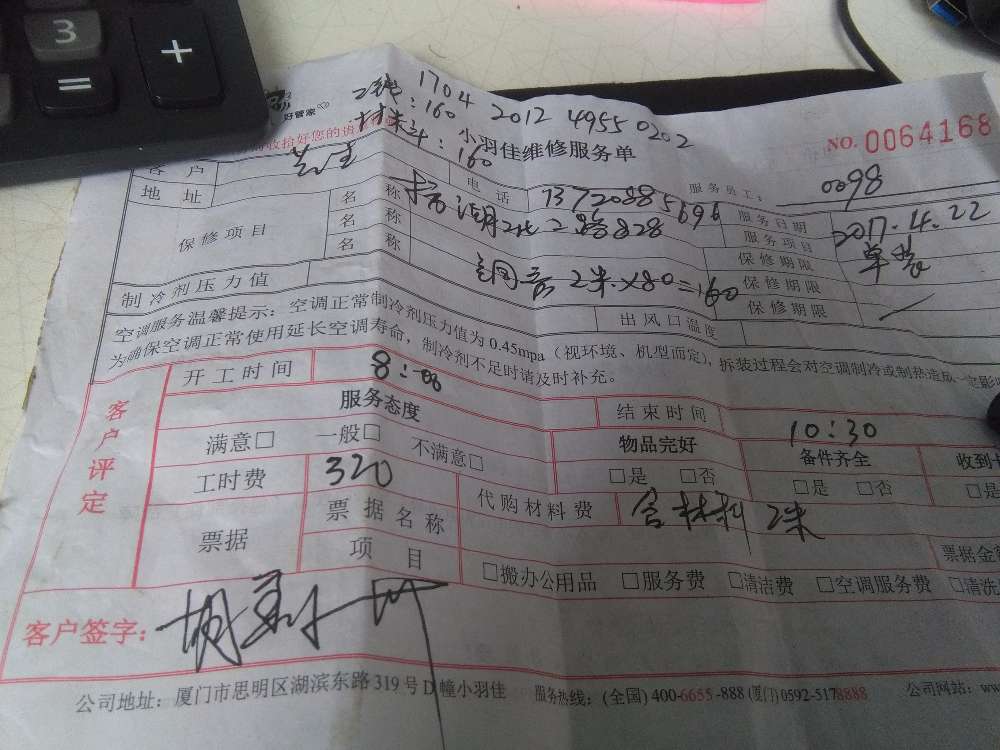 3
+
=
好管家
1704 2012 4955 0202
:160
:160
小羽佳维修服务单
NO. 0064168
客户
电话
13720885696
服务员工:
0098
地址
湖北二路828
服务日期
2017.4.22
保修项目
名称
名称
名称
服务项目
单装
保修期限
保修期限
保修期限
2米×80=160
制冷剂压力值
出风口温度
空调服务温馨提示:空调正常制冷剂压力值为0.45mpa(视环境、机型而定),拆装过程会对空调制冷或制热造成一定影响
为确保空调正常使用延长空调寿命,制冷剂不足时请及时补充。
客户评定
开工时间
8:00
结束时间
10:30
服务态度
物品完好
备件齐全
收到
满意□ 一般□ 不满意□
□是 □否
□是 □否
□是
工时费
320
代购材料费
含材料2米
票据
票据名称
票据金
项目
□搬办公用品 □服务费 □清洁费 □空调服务费 □清洗
客户签字:
公司地址:厦门市思明区湖滨东路319号D幢小羽佳 服务热线:(全国)400-6655-888(厦门)0592-5178888 公司网站:ww